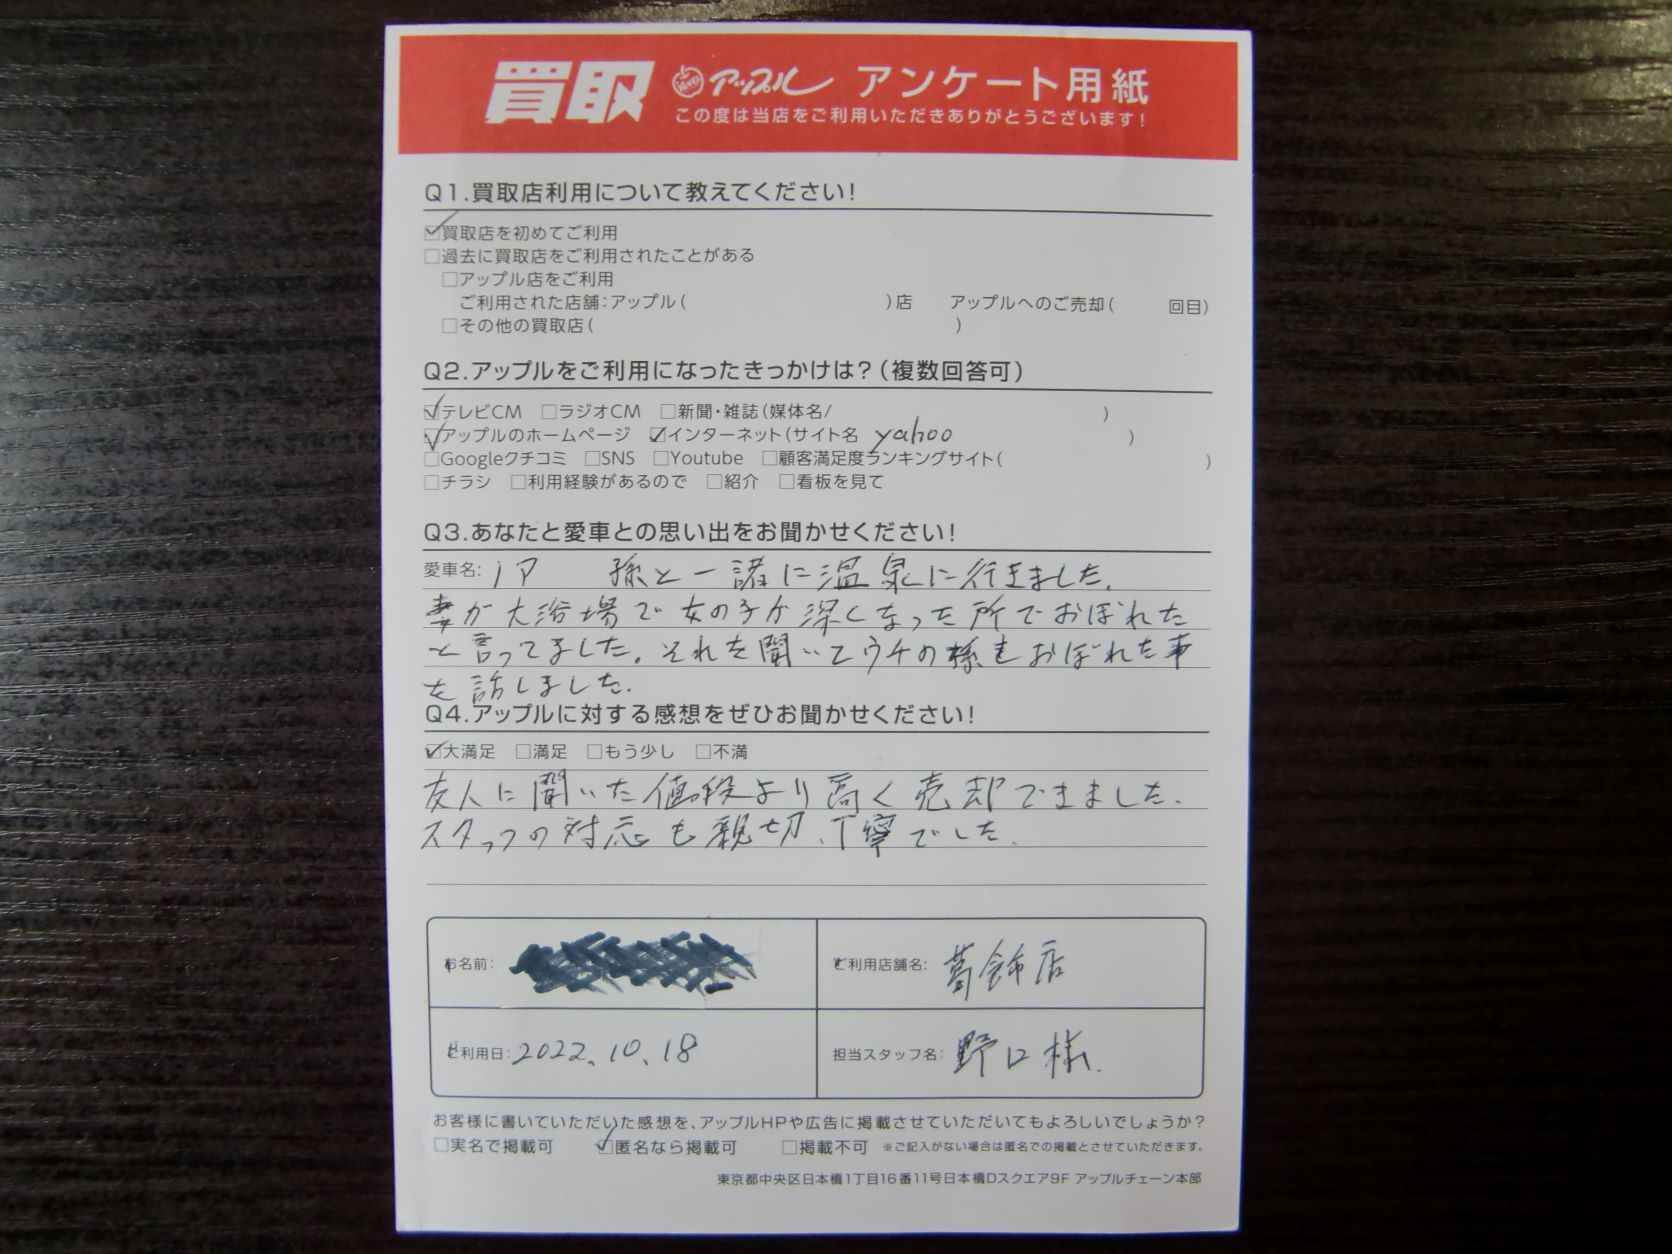 買取 アップル アンケート用紙
この度は当店をご利用いただきありがとうございます!
Q1.買取店利用について教えてください!
☑買取店を初めてご利用
□過去に買取店をご利用されたことがある
□アップル店をご利用
ご利用された店舗:アップル( )店 アップルへのご売却( 回目)
□その他の買取店( )
Q2.アップルをご利用になったきっかけは?(複数回答可)
☑テレビCM □ラジオCM □新聞・雑誌(媒体名/ )
☑アップルのホームページ ☑インターネット(サイト名 yahoo )
□Googleクチコミ □SNS □Youtube □顧客満足度ランキングサイト( )
□チラシ □利用経験があるので □紹介 □看板を見て
Q3.あなたと愛車との思い出をお聞かせください!
愛車名: ノア 孫と一諸に温泉に行きました.
妻が大浴場で女の子が深くなった所でおぼれた
と言ってました。それを聞いてウチの孫もおぼれた事
を話しました.
Q4.アップルに対する感想をぜひお聞かせください!
☑大満足 □満足 □もう少し □不満
友人に聞いた値段より高く売却できました.
スタッフの対応も親切、丁寧でした.
お名前:
ご利用店舗名: 葛飾店
ご利用日: 2022.10.18
担当スタッフ名: 野口様.
お客様に書いていただいた感想を、アップルHPや広告に掲載させていただいてもよろしいでしょうか?
□実名で掲載可 ☑匿名なら掲載可 □掲載不可 ※ご記入がない場合は匿名での掲載とさせていただきます。
東京都中央区日本橋1丁目16番11号日本橋Dスクエア9F アップルチェーン本部